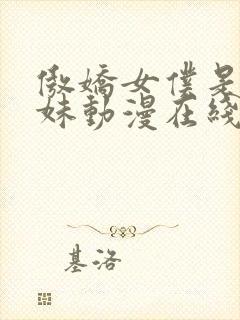 傲嬌女僕是
妹動漫在綫
基洛